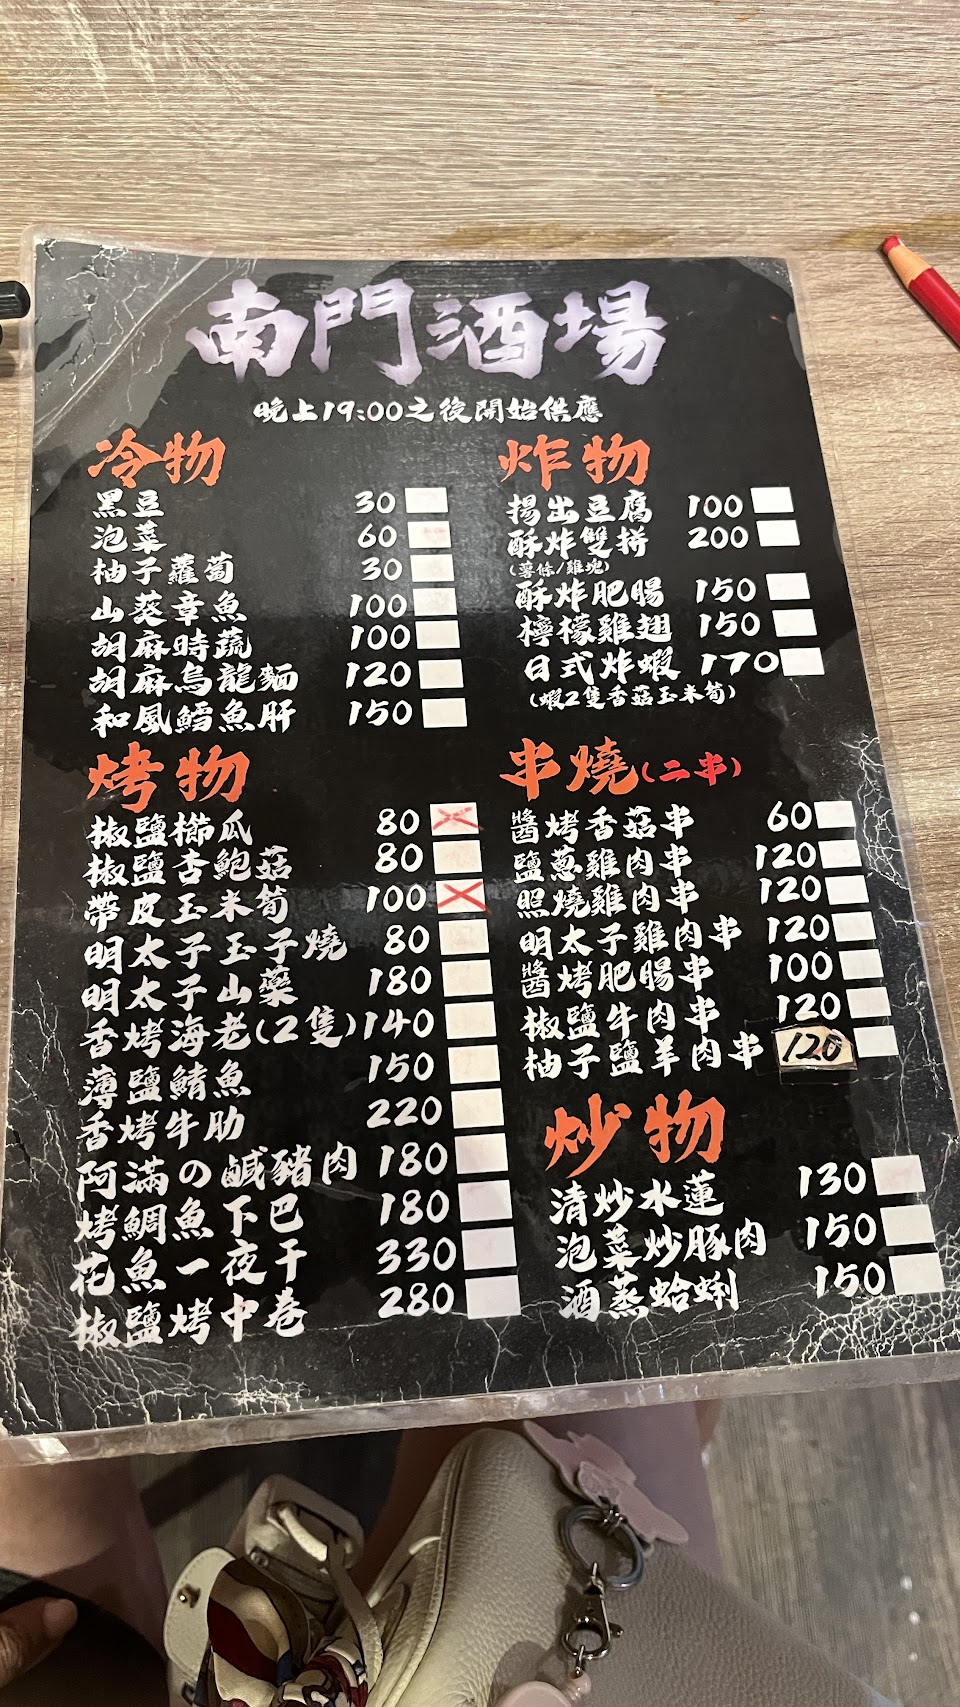 南門酒場
晚上19:00之後開始供應
冷物
黑豆 30
泡菜 60
柚子蘿蔔 30
山葵章魚 100
胡麻時蔬 100
胡麻烏龍麵 120
和風鱈魚肝 150
烤物
椒鹽櫛瓜 80
椒鹽杏鮑菇 80
帶皮玉米筍 100
明太子玉子燒 80
明太子山藥 180
香烤海老(2隻) 140
薄鹽鯖魚 150
香烤牛肋 220
阿滿の鹹豬肉 180
烤鯛魚下巴 180
花魚一夜干 330
椒鹽烤中卷 280
炸物
揚出豆腐 100
酥炸雙拼 200
(薯條/雞塊)
酥炸肥腸 150
檸檬雞翅 150
日式炸蝦 170
(蝦2隻香菇玉米筍)
串燒(二串)
醬烤香菇串 60
鹽蔥雞肉串 120
照燒雞肉串 120
明太子雞肉串 120
醬烤肥腸串 100
椒鹽牛肉串 120
柚子鹽羊肉串 120
炒物
清炒水蓮 130
泡菜炒豚肉 150
酒蒸蛤蜊 150